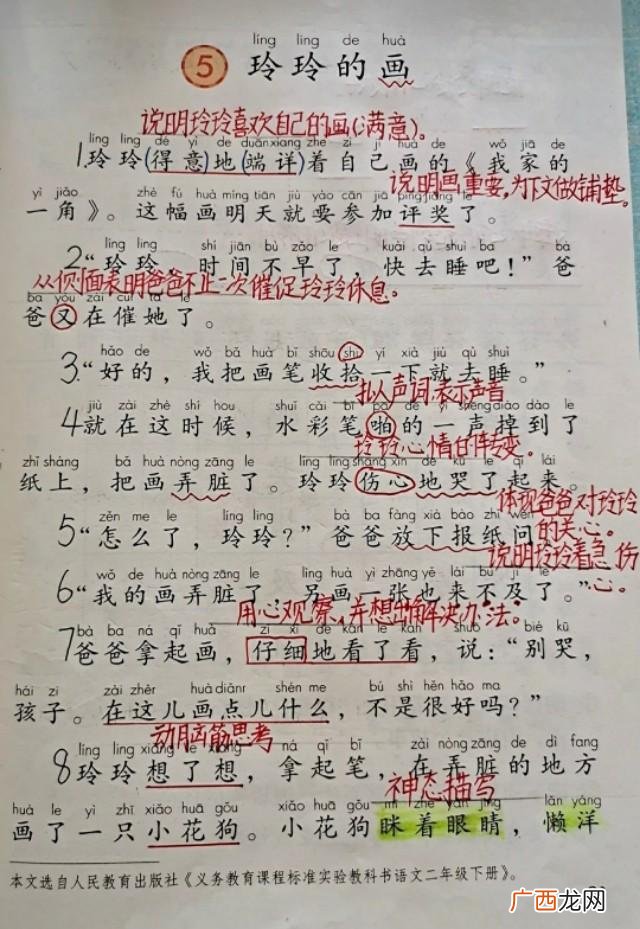 líng ling de huà
5 玲玲的画
说明玲玲喜欢自己的画(满意)。
líng ling dé yì de duānxiang zhe zì jǐ huà de wǒ jiā de
1.玲玲(得意)地(端详)着自己画的《我家的
说明画重要,为下文做铺垫。
yì jiǎo zhè fú huà míng tiān jiù yào cān jiā píng jiǎng le
一角》。这幅画明天就要参加评奖了。
líng ling shí jiān bù zǎo le kuài qù shuì ba bà
2“玲玲,时间不早了,快去睡吧!”爸
从侧面表明爸爸不止一次催促玲玲休息。
ba yòu zài cuī tā le
爸又在催她了。
hǎo de wǒ bǎ huà bǐ shōu shi yí xià jiù qù shuì
3.“好的,我把画笔收拾一下就去睡。”
拟人声词.表示声音
jiù zài zhè shí hou shuǐ cǎi bǐ pā de yì shēng diào dào le
4就在这时候,水彩笔啪的一声掉到了
玲玲心情的转变。
zhǐ shàng bǎ huà nòng zāng le líng ling shāng xīn de kū le qǐ lái
纸上,把画弄脏了。玲玲伤心地哭了起来。
体现爸爸对玲玲
的关心。
zěn me le líng ling bà ba fàng xià bào zhǐ wèn
5“怎么了,玲玲?”爸爸放下报纸问
说明玲玲着急伤
心。
wǒ de huà nòng zāng le lìng huà yì zhāng yě lái bu jí le
6“我的画弄脏了,另画一张也来不及了。”
用心观察,并想出解决办法。
bà ba ná qǐ huà zǐ xì de kàn le kàn shuō bié kū
7爸爸拿起画,仔细地看了看,说:“别哭,
hái zi zài zhèr huà diǎnr shén me bú shì hěn hǎo ma
孩子。在这儿画点儿什么,不是很好吗?”
动脑筋思考
líng ling xiǎng le xiǎng ná qǐ bǐ zài nòng zāng de dì fang
8玲玲想了想,拿起笔,在弄脏的地方
神态描写
huà le yì zhī xiǎo huā gǒu xiǎo huā gǒu mī zhe yǎn jīng lǎn yáng
画了一只小花狗。小花狗眯着眼睛,懒洋
本文选自人民教育出版社《义务教育课程标准实验教科书语文二年级下册》。
广西龙网